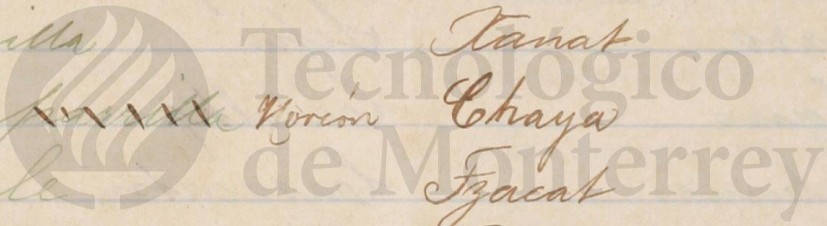 illa Xanat
Chaya
le Tzacat
Tecnológico
de Monterrey